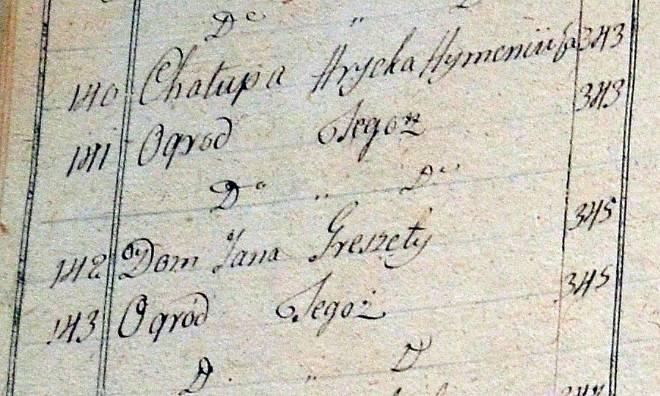 Do " D
140 Chałupa Hrycka Hymeniuk 343
141 Ogrod Tegoż 343
Do " Do
142 Dom Jana Greszety 345
143 Ogrod Tegoż 345
D " D